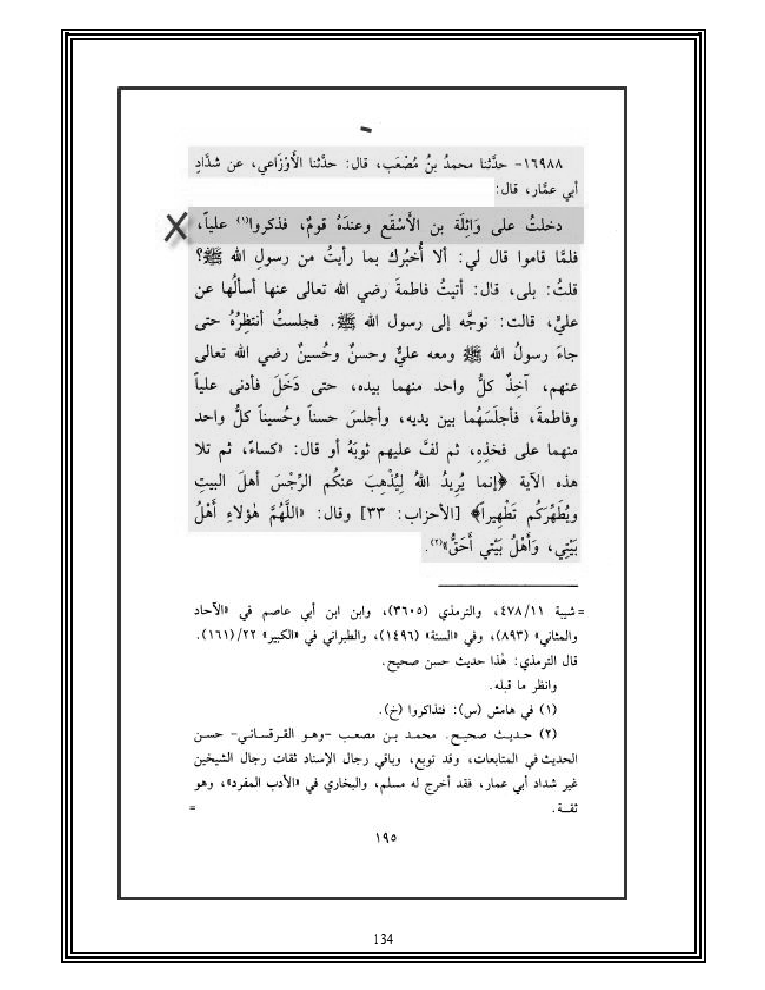 ١٦٩٨٨- حدَّثنا محمدُ بنُ مُصْعَب، قال: حدَّثنا الأَوْزَاعي، عن شدَّادٍ
أبي عمَّار، قال:
دخلتُ على وَاثِلَة بن الأَسْقَع وعندَهُ قومٌ، فذكروا(١) علياً،
فلمَّا قاموا قال لي: ألا أُخبِرُك بما رأيتُ من رسولِ الله ﷺ؟
قلتُ: بلى، قال: أتيتُ فاطمةَ رضي الله تعالى عنها أسألُها عن
عليٍّ، قالت: توجَّه إلى رسول الله ﷺ. فجلستُ أنتظِرُهُ حتى
جاءَ رسولُ الله ﷺ ومعه عليٌّ وحسنٌ وحُسينٌ رضي الله تعالى
عنهم، آخِذٌ كلَّ واحد منهما بيده، حتى دَخَلَ فأدنى علياً
وفاطمةَ، فأجلَسَهُما بين يديه، وأجلسَ حسناً وحُسيناً كلَّ واحد
منهما على فخذِهِ، ثم لفَّ عليهم ثوبَهُ أو قال: «كساءً، ثم تلا
هذه الآية ﴿إنما يُرِيدُ اللهُ لِيُذْهِبَ عنكُم الرِّجْسَ أهلَ البيتِ
ويُطَهِّرَكم تَطْهِيراً﴾ [الأحزاب: ٣٣] وقال: «اللَّهُمَّ هٰؤلاءِ أَهْلُ
بَيْتِي، وَأَهْلُ بَيْتي أَحَقُّ»(٢).
= شيبة ٤٧٨/١١، والترمذي (٣٦٠٥)، وابن ابن أبي عاصم في «الآحاد
والمثاني» (٨٩٣)، وفي «السنة» (١٤٩٦)، والطبراني في «الكبير» ٢٢/(١٦١).
قال الترمذي: هٰذا حديث حسن صحيح.
وانظر ما قبله.
(١) في هامش (س): فتذاكروا (خ).
(٢) حديث صحيح. محمد بن مصعب -وهو القرقساني- حسن
الحديث في المتابعات، وقد توبع، وباقي رجال الإسناد ثقات رجال الشيخين
غير شداد أبي عمار، فقد أخرج له مسلم، والبخاري في «الأدب المفرد»، وهو
ثقة. =
١٩٥
134